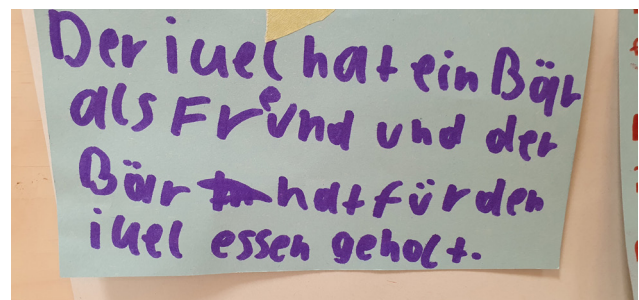 Der iuel hat ein Bär
als Freund und der
Bär hat für den
iuel essen geholt.